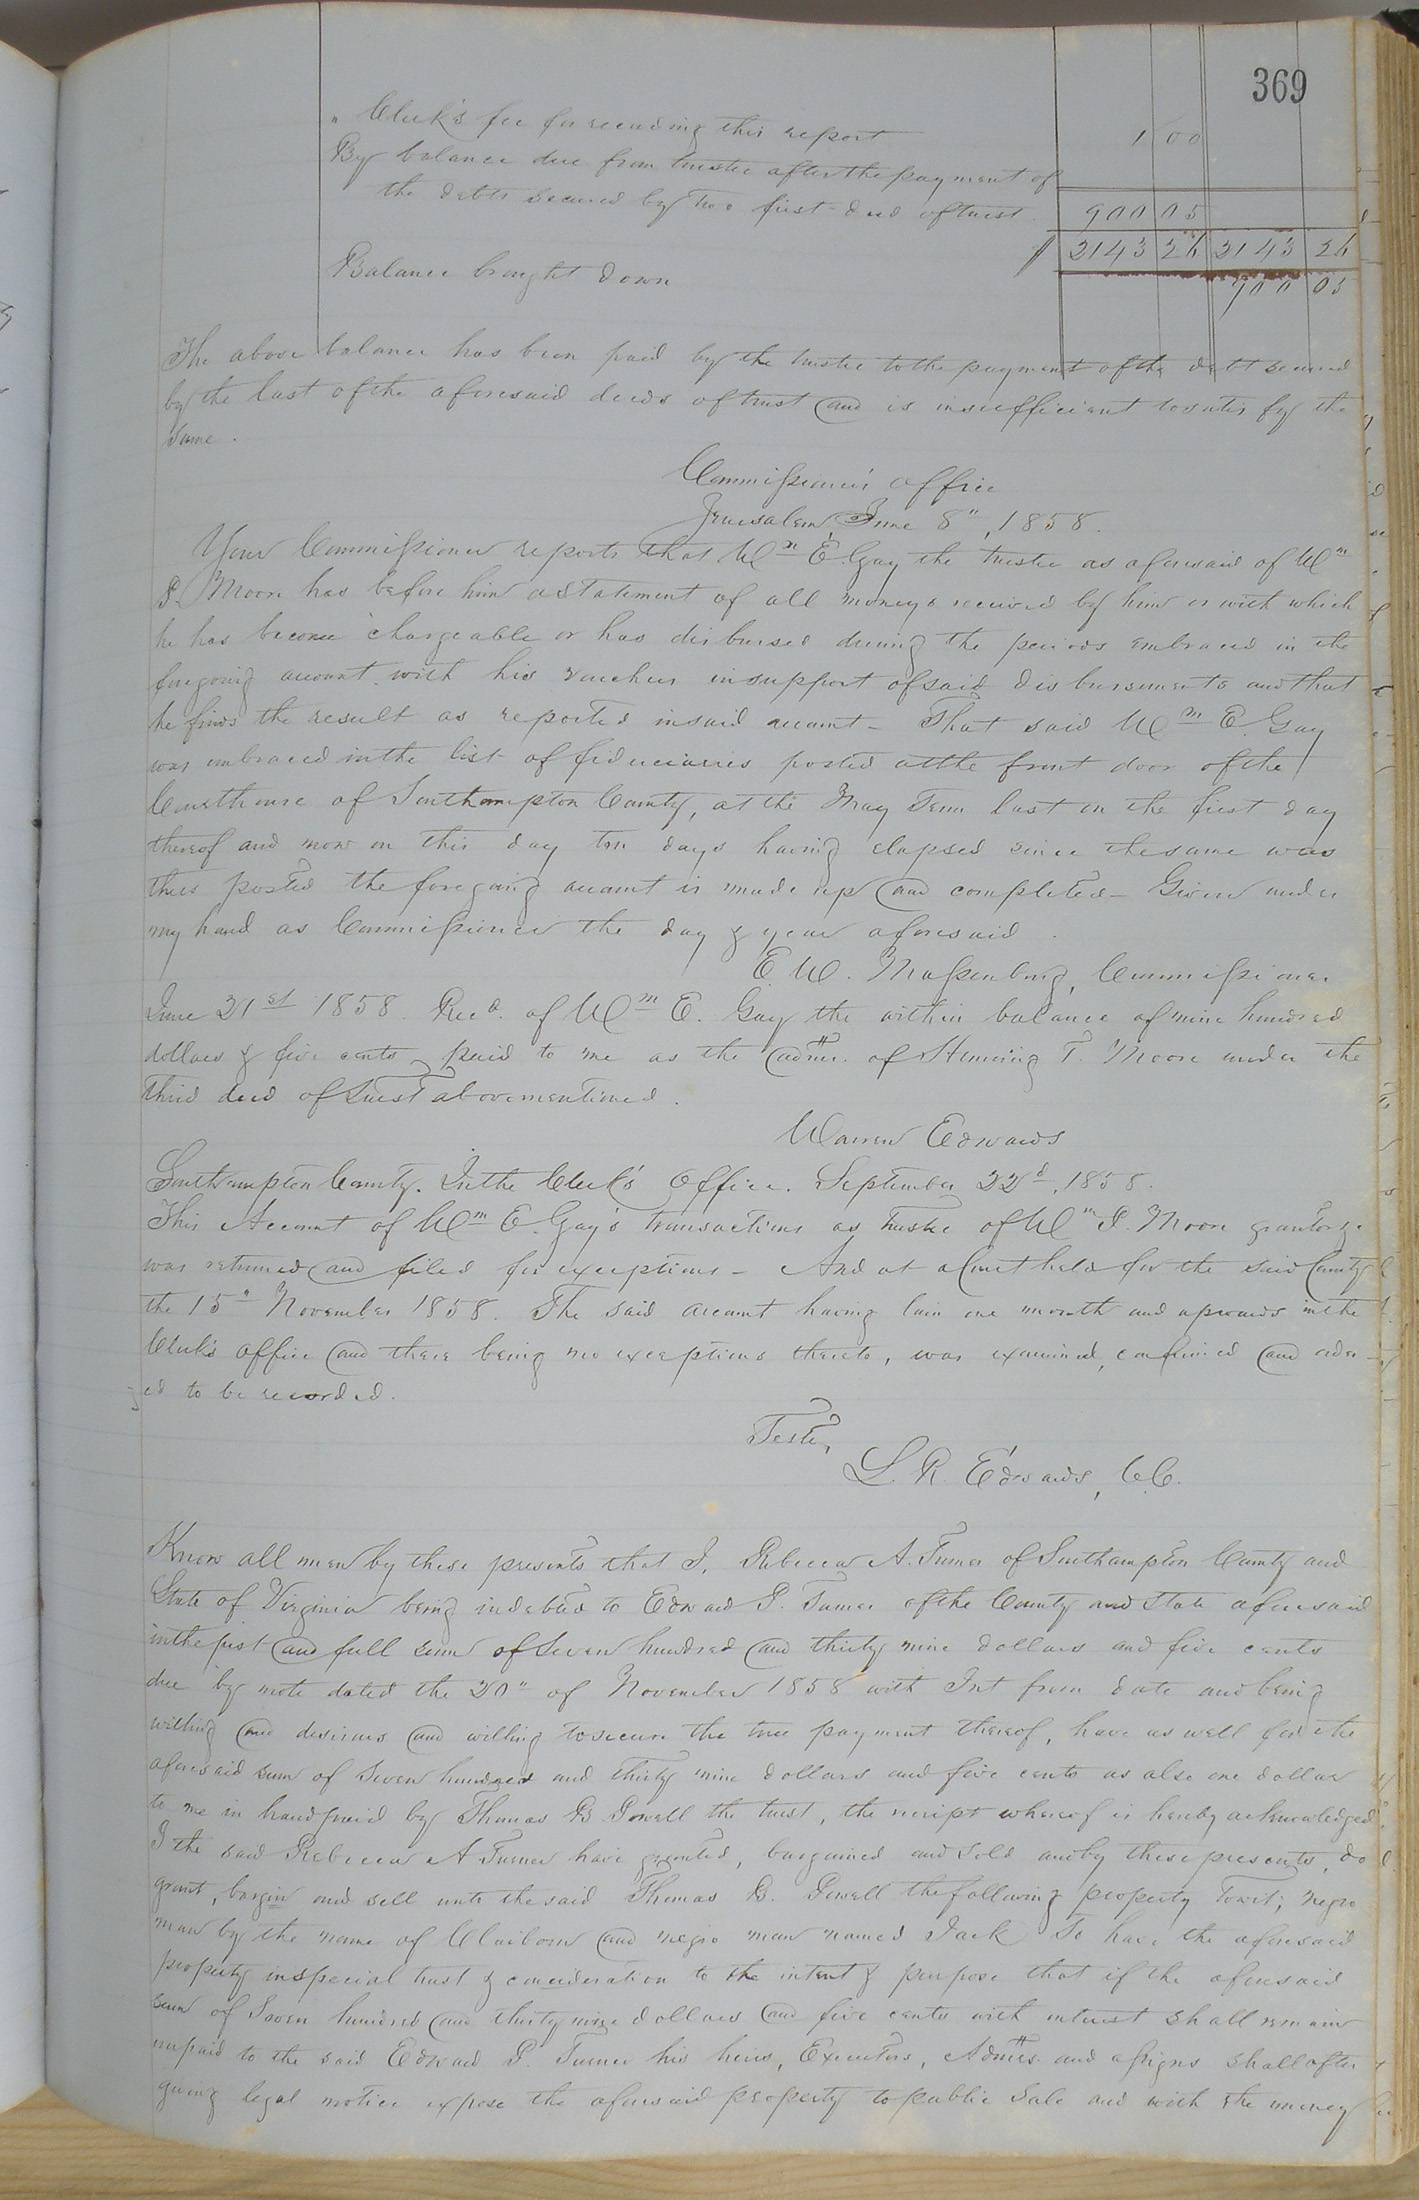 369
" Clerk's fee for recording this report 1 00
By balance due from trustee after the payment of
the debts secured by two first deed of trust 900 05
2143 26 2143 26
Balance brought down 900 05
The above balance has been paid by the trustee to the payment of the debt secured
by the last of the aforesaid deeds of trust and is insufficient to satisfy the
same.
Commissioner's office
Jerusalem, June 8", 1858.
Your Commissioner reports that Wm E. Gay the trustee as aforesaid of Wm
Moore has before him a statement of all moneys received by him or with which
he has become chargeable or has disbursed during the periods embraced in the
foregoing account with his vouchers in support of said disbursements and that
he finds the result as reported in said account - That said Wm E. Gay
was embraced in the list of fiduciaries posted at the front door of the
Courthouse of Southampton County, at the May Term last on the first day
thereof and now on this day ten days having elapsed since the same was
thus posted the foregoing account is made up and completed - Given under
my hand as Commissioner the day & year aforesaid.
E. W. Massenburg, Commissioner
June 21st 1858. Recd. of Wm E. Gay the within balance of nine hundred
dollars & five cents paid to me as the admr. of Henning T. Moore under the
third deed of Trust abovementioned.
Warren Edwards
Southampton County. In the Clerk's Office. September 22d, 1858.
This Account of Wm E. Gay's transactions as trustee of Wm Moore grantor &c
was returned and filed for exceptions - And at a Court held for the said County
the 15" November 1858. The said account having lain one month and upwards in the
Clerk's office and there being no exceptions thereto, was examined, confirmed and order
ed to be recorded.
Teste,
L. R. Edwards, C.C.
Know all men by these presents that I, Rebecca A. Turner of Southampton County and
State of Virginia being indebted to Edward P. Turner of the County and State aforesaid
in the just and full sum of Seven hundred and thirty nine dollars and five cents
due by note dated the 20" of November 1858 with Int from date and being
willing and desirous and willing to secure the true payment thereof, have as well for the
aforesaid sum of Seven hundred and thirty nine dollars and five cents as also one dollar
to me in hand paid by Thomas B. Powell the trust, the receipt whereof is hereby acknowledged,
I the said Rebecca A Turner have granted, bargained and sold and by these presents, do
grant, bargin and sell unto the said Thomas B. Powell the following property Towit; negro
man by the name of Claiborn and negro man named Jack To have the aforesaid
property in special trust & consideration to the intent & purpose that if the aforesaid
sum of Seven hundred and thirty nine dollars and five cents with interest shall remain
unpaid to the said Edward P. Turner his heirs, Executors, Admrs. and assigns shall after
giving legal notice expose the aforesaid property to public Sale and with the money